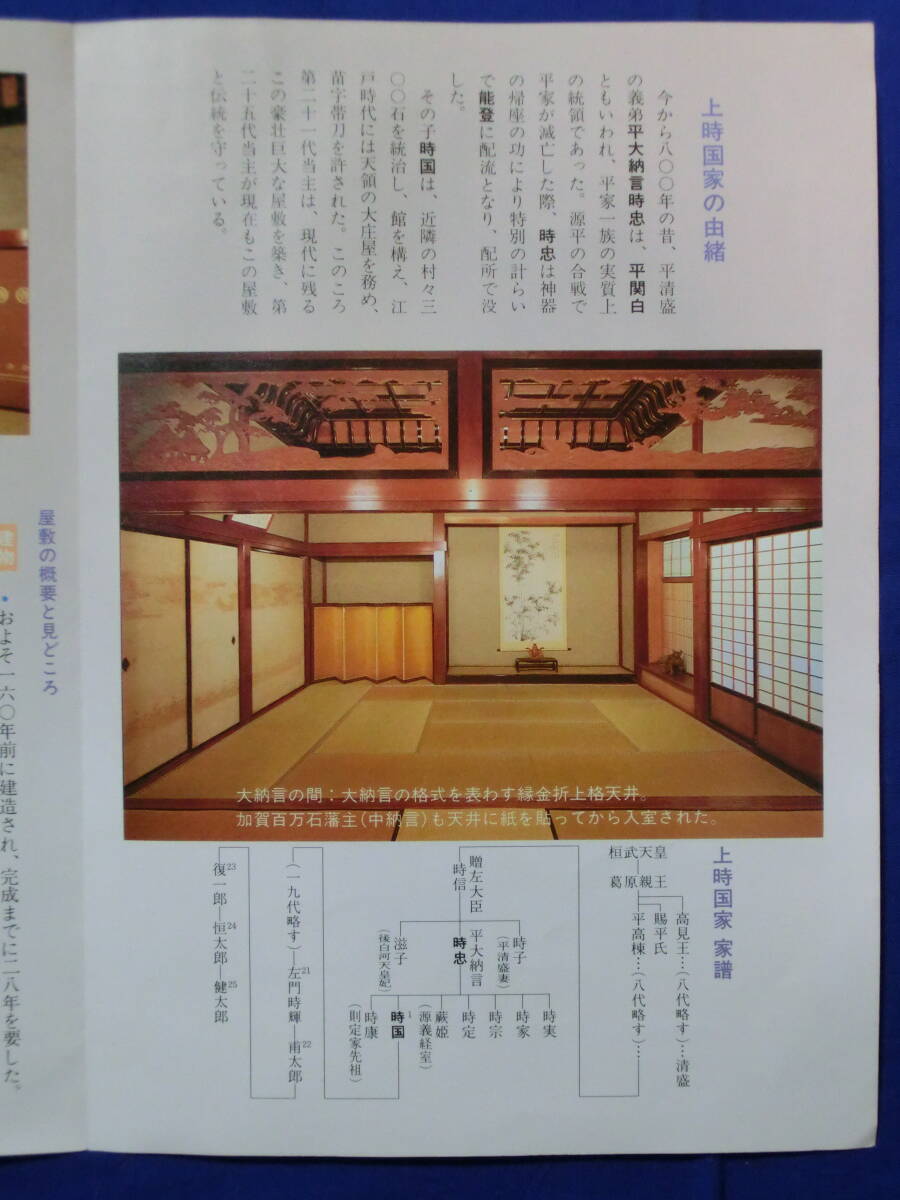 上時国家の由緒
今から八〇〇年の昔、平清盛
の義弟平大納言時忠は、平関白
ともいわれ、平家一族の実質上
の統領であった。源平の合戦で
平家が滅亡した際、時忠は神器
の帰座の功により特別の計らい
で能登に配流となり、配所で没
した。
その子時国は、近隣の村々三
〇〇石を統治し、館を構え、江
戸時代には天領の大庄屋を務め、
苗字帯刀を許された。このころ
第二十一代当主は、現代に残る
この豪壮巨大な屋敷を築き、第
二十五代当主が現在もこの屋敷
と伝統を守っている。
大納言の間：大納言の格式を表わす縁金折上格天井。
加賀百万石藩主(中納言)も天井に紙を貼ってから入室された。
上時国家 家譜
桓武天皇
葛原親王
高見王…(八代略す)…清盛
賜平氏
平高棟…(八代略す)…
贈左大臣
時信
時子
(平清盛妻)
平大納言
時忠
滋子
(後白河天皇妃)
時実
時家
時宗
時定
蕨姫
(源義経室)
時国1
時康
(則定家先祖)
(一九代略す)―左門時輝21―甫太郎22
復一郎23―恒太郎24―健太郎25
屋敷の概要と見どころ
建物
・およそ一六〇年前に建造され、完成までに二八年を要した。